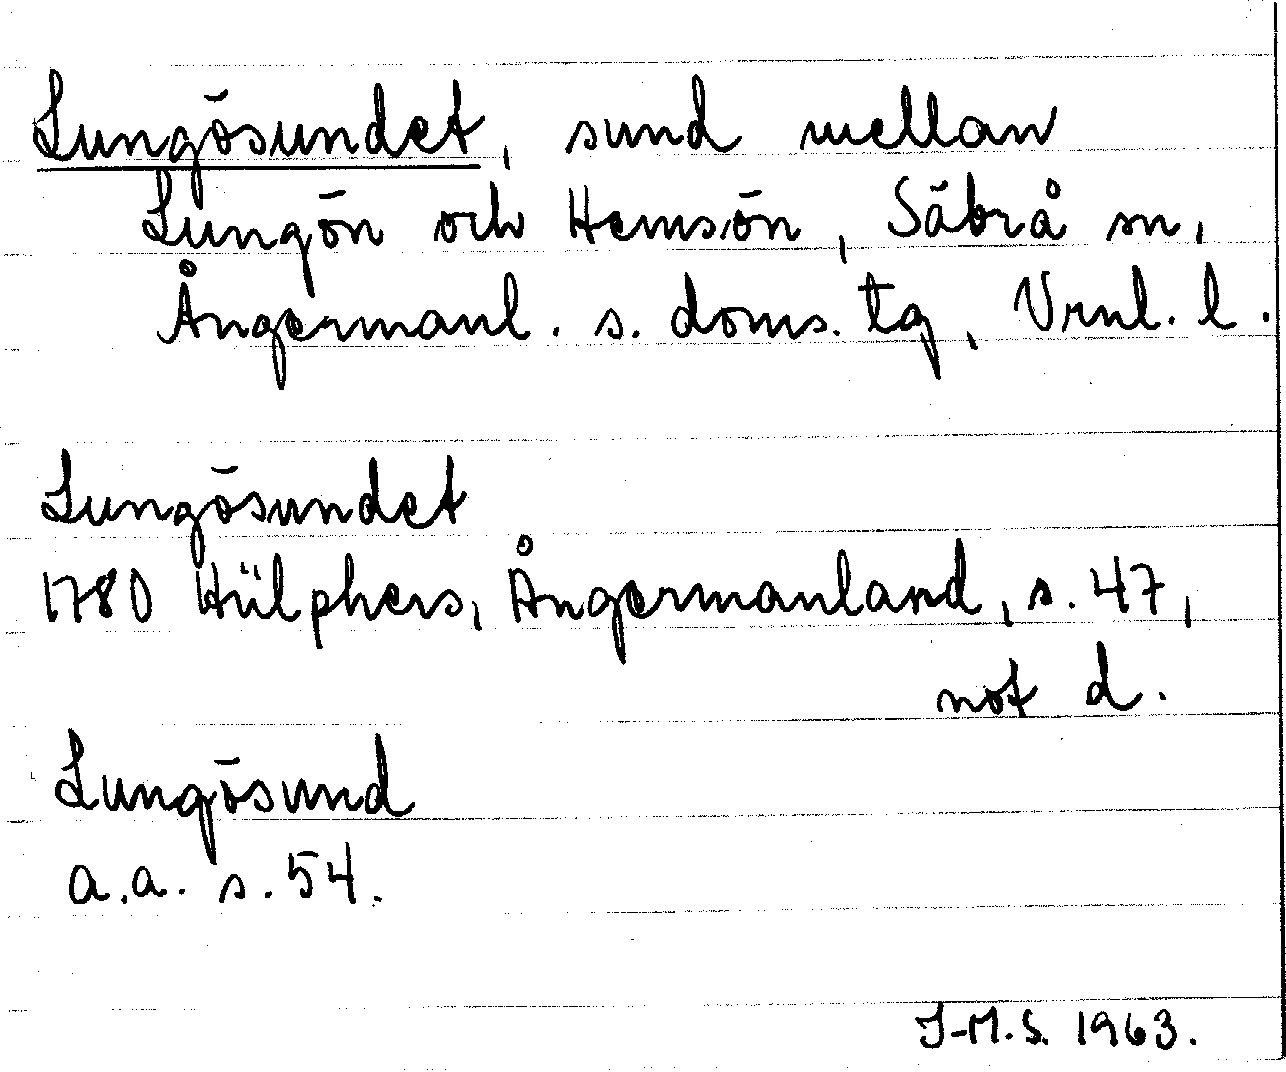 Lungösundet, sund mellan
Lungön och Hemsön, Säbrå sn,
Ångermanl. s. doms. tg, Vrnl. l.
Lungösundet
1780 Hülphers, Ångermanland, s. 47,
not d.
Lungösund
a.a. s. 54.
J-M.S. 1963.